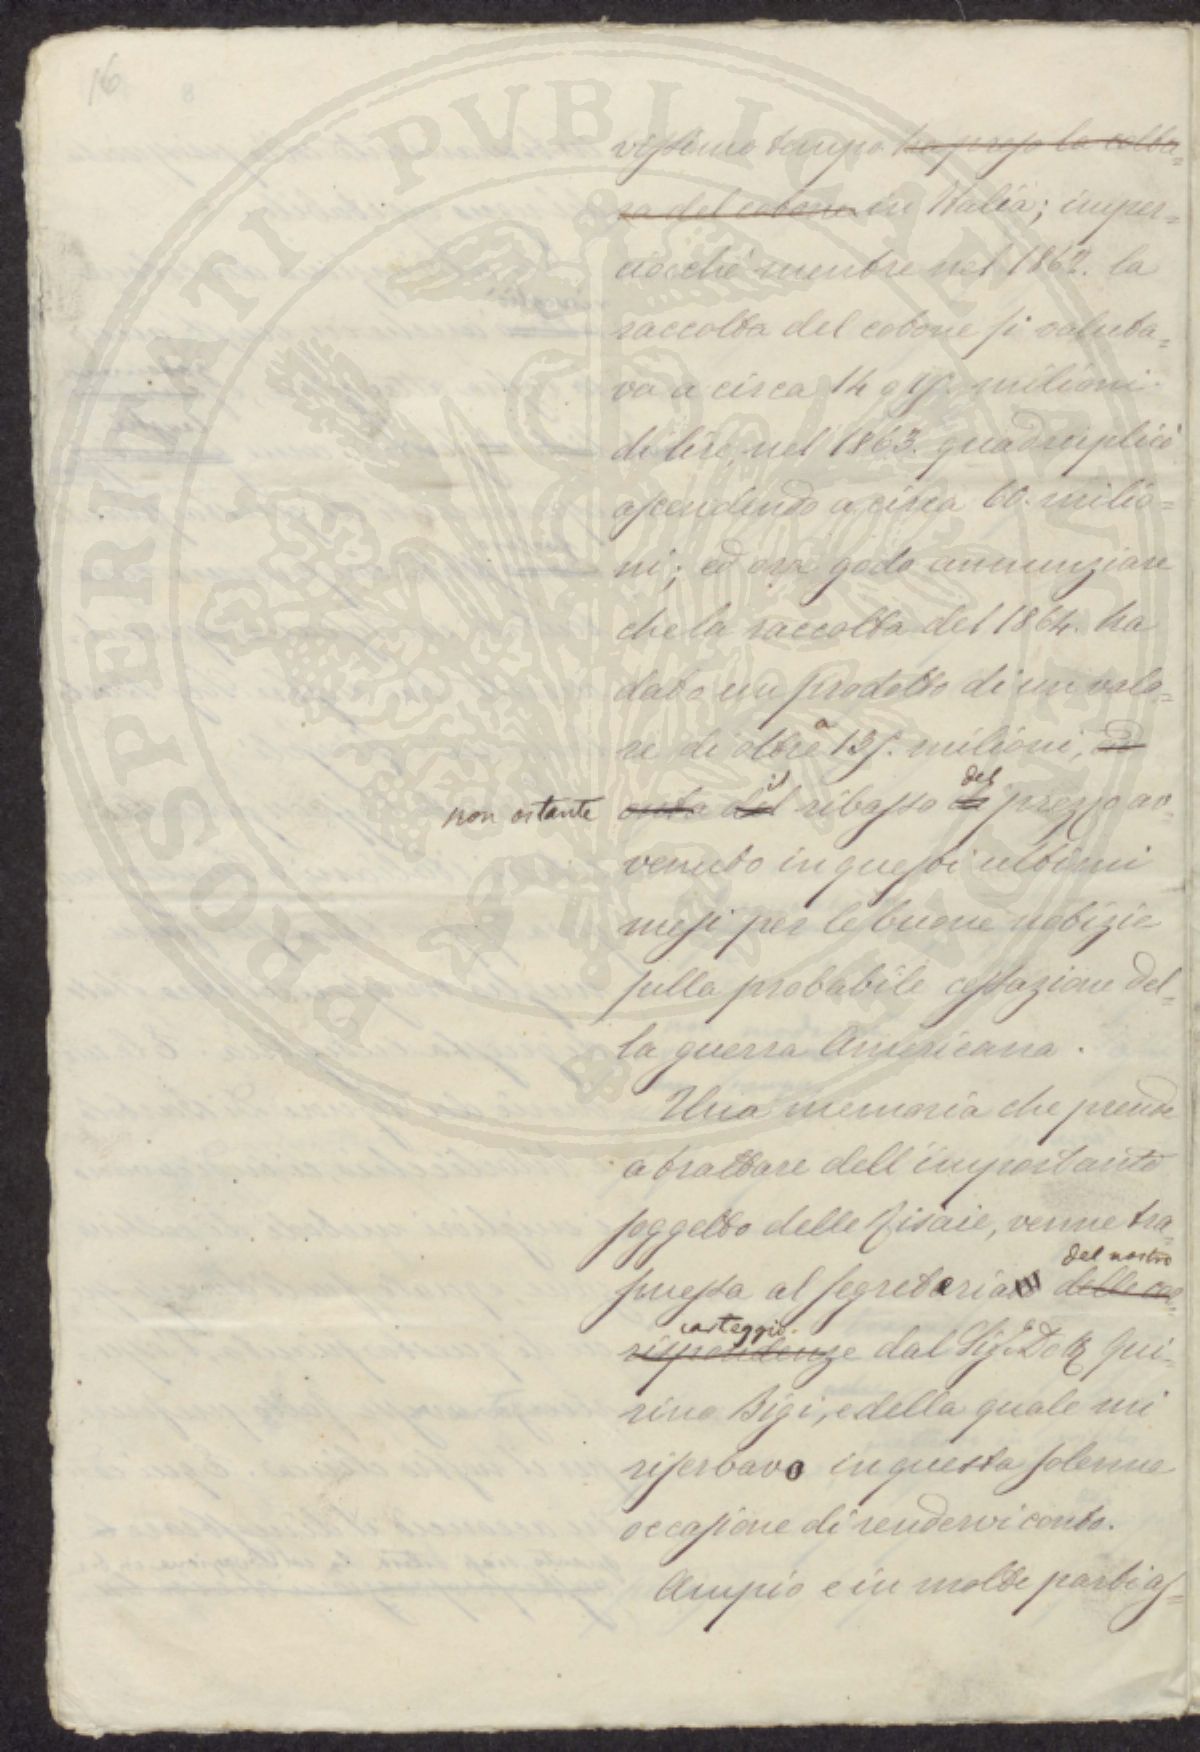 16
vissimo tempo ha preso la coltu=
ra del cotone in Italia; imper=
ciocchè mentre nel 1862. la
raccolta del cotone si valuta=
va a circa 14 o 15. milioni
di lire, nel 1863. quadruplicò
ascendendo a circa 60. milio=
ni; ed ora godo annunziare
che la raccolta del 1864. ha
dato un prodotto di un valo=
re di oltre a 135. milioni, ad
non ostante onta del il ribasso di del prezzo av=
venuto in questi ultimi
mesi per le buone notizie
sulla probabile cessazione del=
la guerra Americana.
Una memoria che prende
a trattare dell'importante
soggetto delle Risaie, venne tra=
smessa al segretario delle cor= del nostro
rispondenze carteggio. dal Sig. Dott. Qui=
rino Bigi, e della quale mi
riserbavo in questa solenne
occasione di rendervi conto.
Ampio e in molte parti as=
PROSPERITATI PUBLICAE